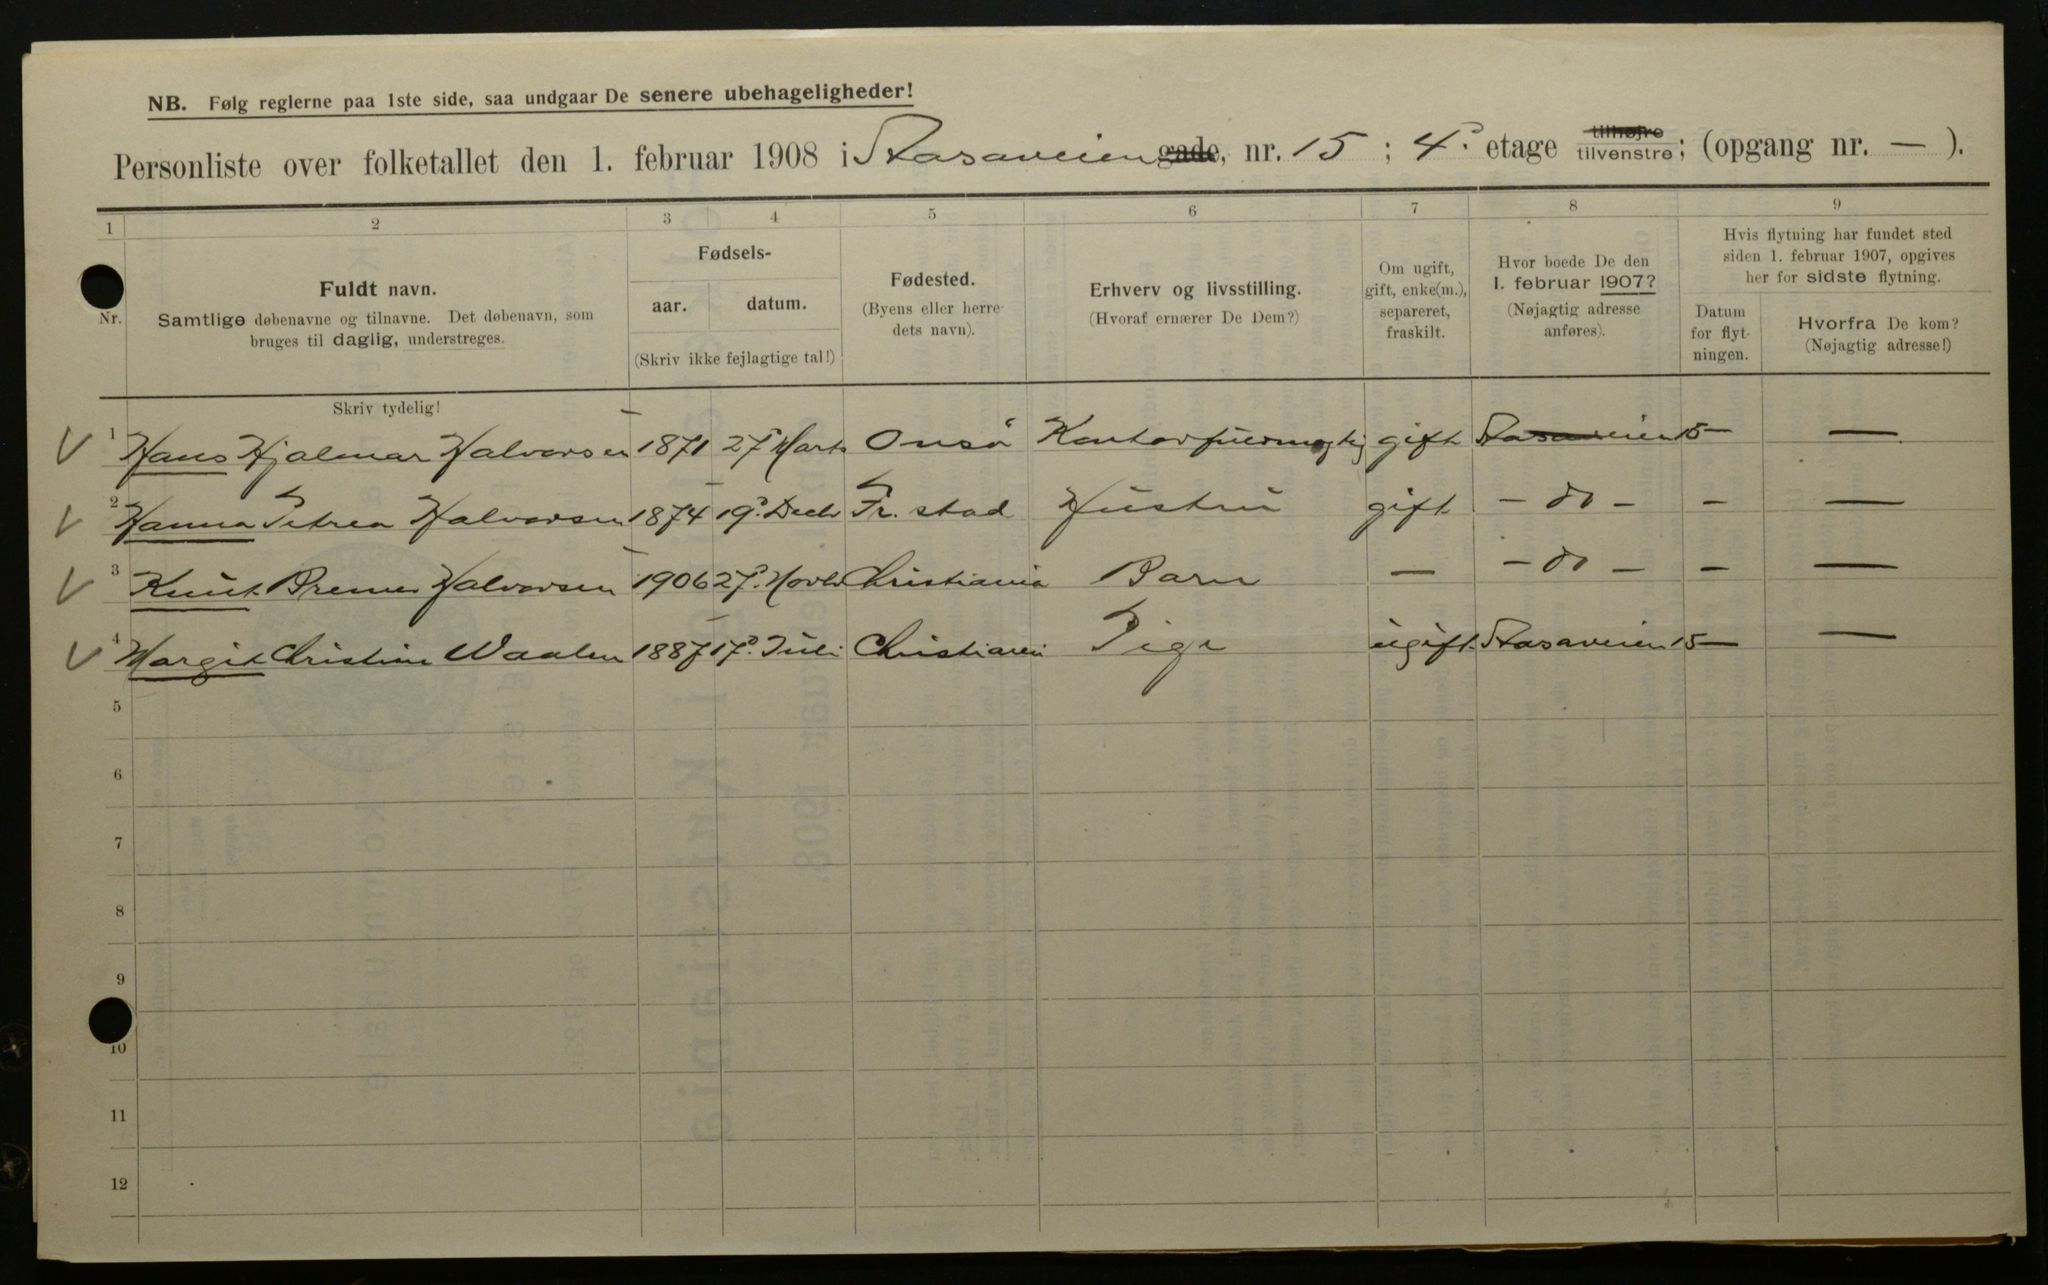 NB. Følg reglerne paa 1ste side, saa undgaar De senere ubehageligheder!
Personliste over folketallet den 1. februar 1908 i Aasaveien gade, nr. 15 ; 4. etage tilhøjre tilvenstre ; (opgang nr. — ).
1 2 3 4 5 6 7 8 9
Nr.
Fuldt navn.
Samtlige døbenavne og tilnavne. Det døbenavn, som
bruges til daglig, understreges.
Fødsels-
aar. datum.
(Skriv ikke fejlagtige tal!)
Fødested.
(Byens eller herre-
dets navn).
Erhverv og livsstilling.
(Hvoraf ernærer De Dem?)
Om ugift,
gift, enke(m.),
separeret,
fraskilt.
Hvor boede De den
1. februar 1907?
(Nøjagtig adresse
anføres).
Hvis flytning har fundet sted
siden 1. februar 1907, opgives
her for sidste flytning.
Datum
for flyt-
ningen.
Hvorfra De kom?
(Nøjagtig adresse!)
Skriv tydelig!
1 Hans Hjalmar Halvorsen 1871 27 Marts Onsø Kontorfuldmægtig gift Aasaveien 15 — —
2 Hanna Petrea Halvorsen 1874 19. Decbr Fr. stad Hustru gift - do - - —
3 Knut Bremer Halvorsen 1906 27. Novbr Christiania Barn — - do - - —
4 Margit Christine Waaler 1887 17. Juli Christiania Pige ugift Aasaveien 15 — —
5
6
7
8
9
10
11
12